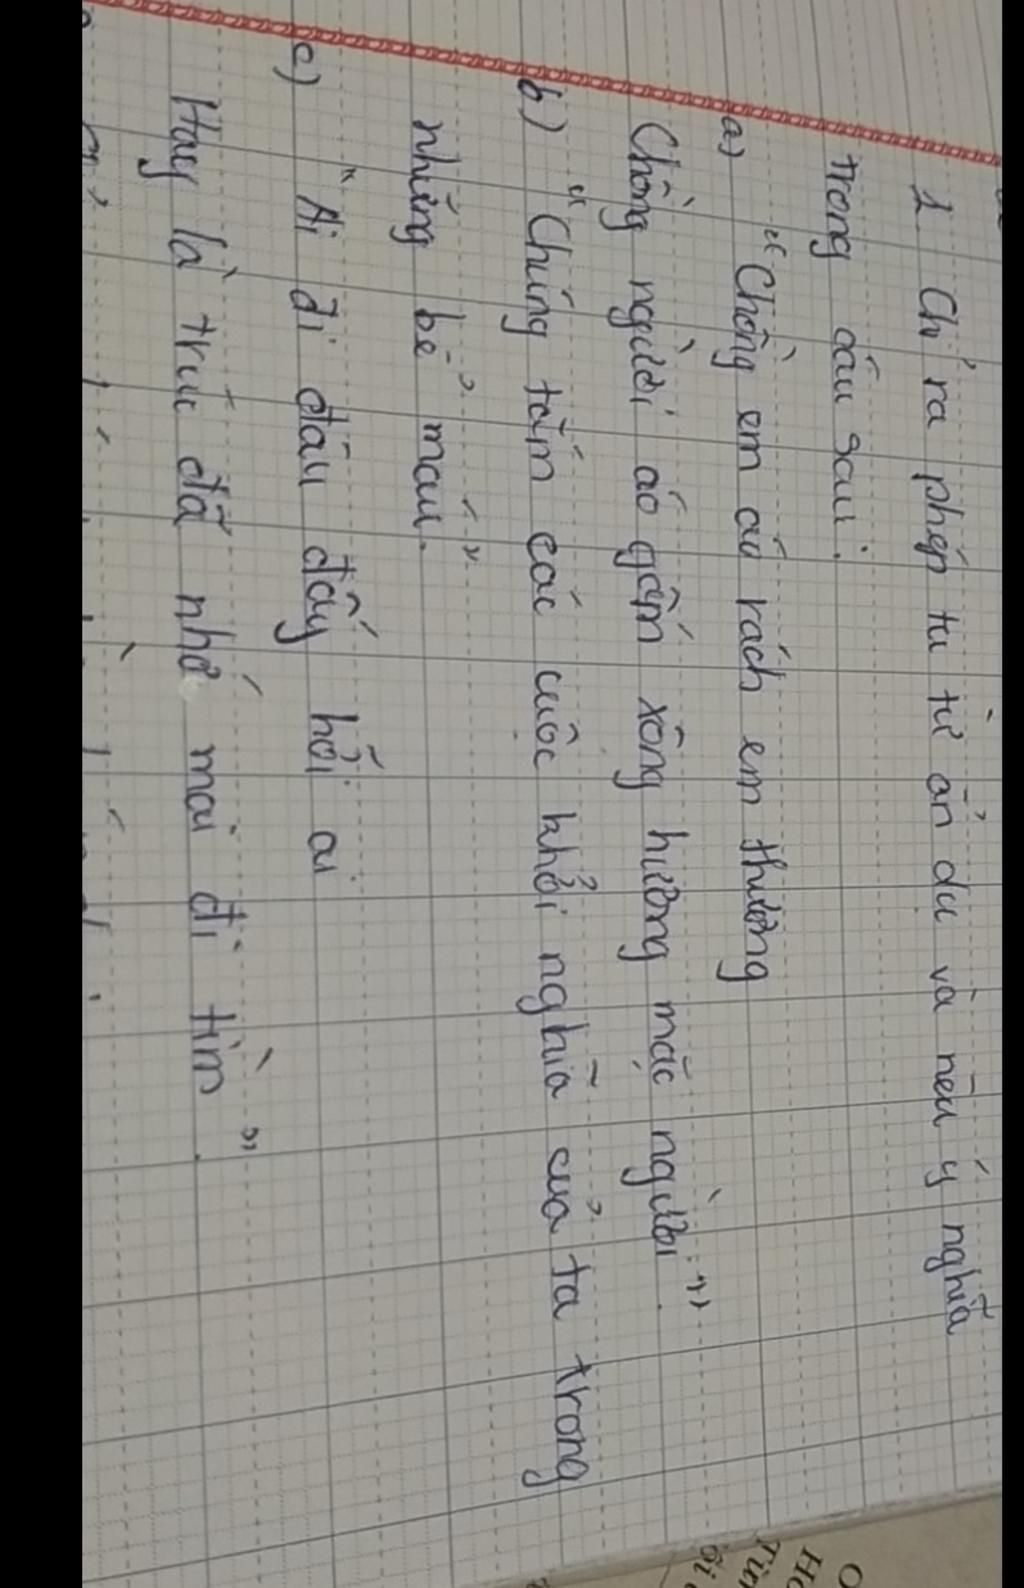 1. Chỉ ra phép tu từ ẩn dụ và nêu ý nghĩa
trong câu sau:
a) "Chồng em áo rách em thương
Chồng người áo gấm xông hương mặc người".
b) "Chúng tắm các cuộc khởi nghĩa của ta trong
những bể máu."
c) "Ai đi đâu đấy hỡi ai
Hay là trúc đã nhớ mai đi tìm".